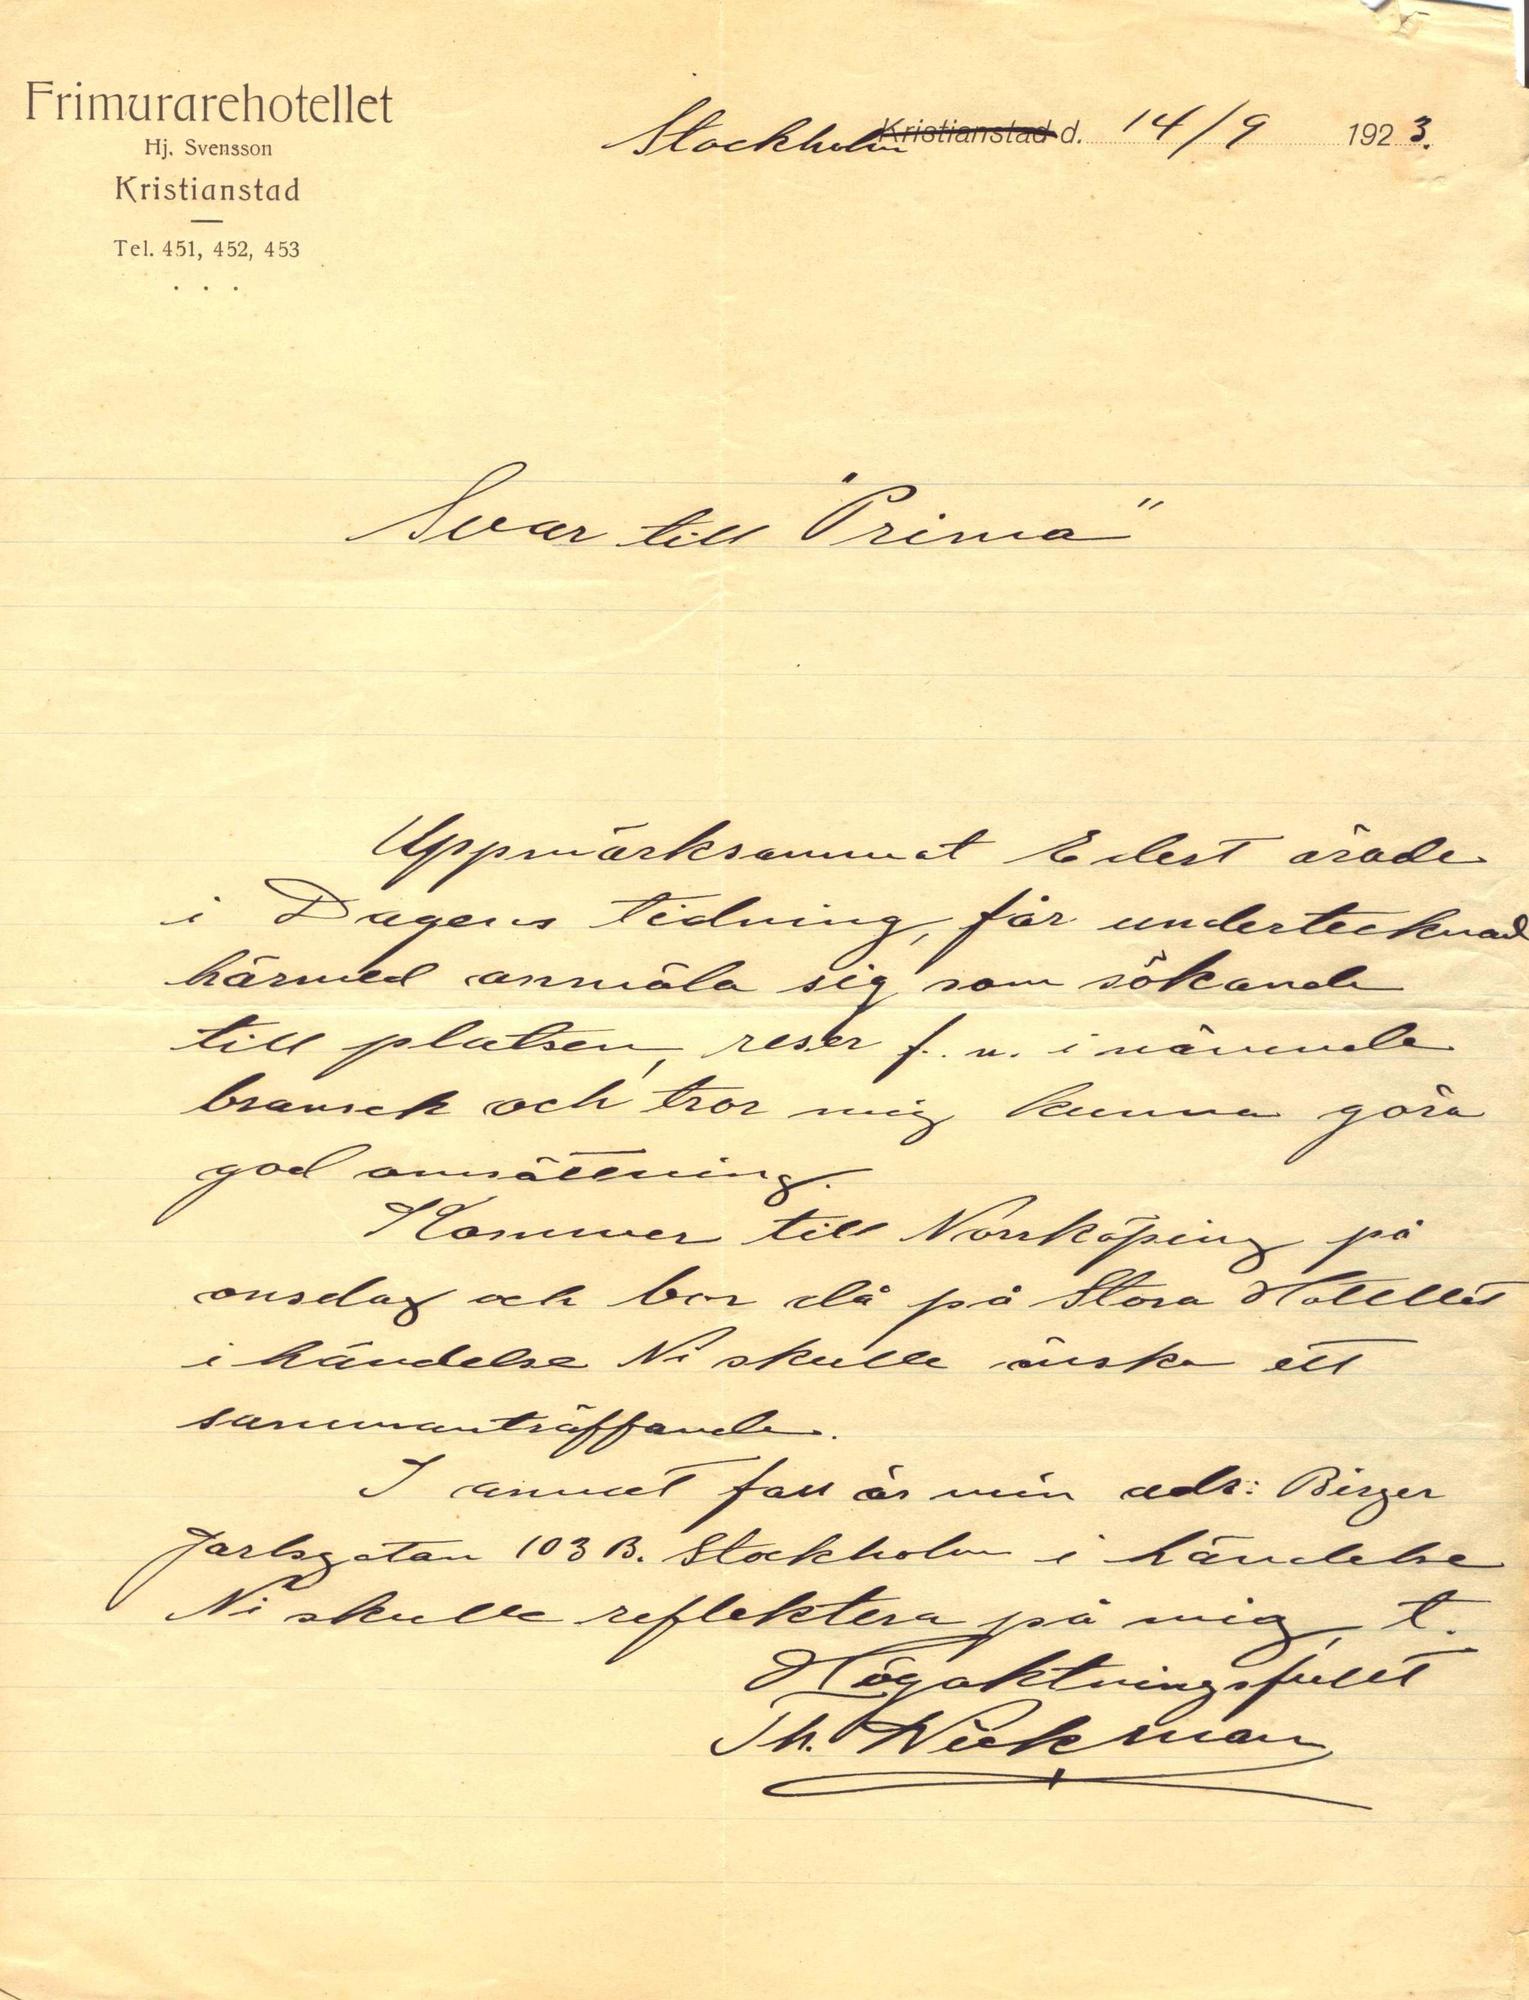 Frimurarehotellet
Hj. Svensson
Kristianstad
Tel. 451, 452, 453
Stockholm Kristianstad d. 14/9 1923.
Svar till "Prima"
Uppmärksammat Edert ärade
i Dagens tidning, får undertecknad
härmed anmäla sig som sökande
till platsen, reser f. n. i nämnde
bransch och tror mig kunna göra
god omsättning.
Kommer till Norrköping på
onsdag och bor då på Stora Hotellet
i händelse Ni skulle önska ett
sammanträffande.
I annat fall är min adr: Birger
Jarlsgatan 103 B. Stockholm i händelse
Ni skulle reflektera på mig, t.
Högaktningsfullt
Th. Wickman